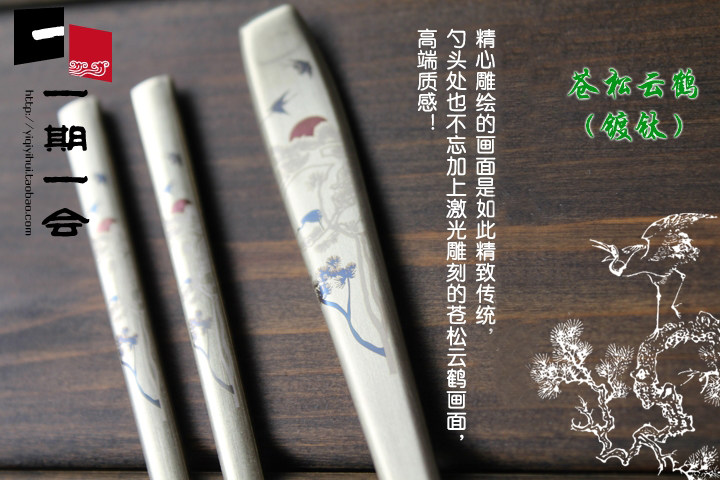 一期一会
http://yiqiyihui.taobao.com
精心雕绘的画面是如此精致传统，
勺头处也不忘加上激光雕刻的苍松云鹤画面，
高端质感！
苍松云鹤
（镀钛）